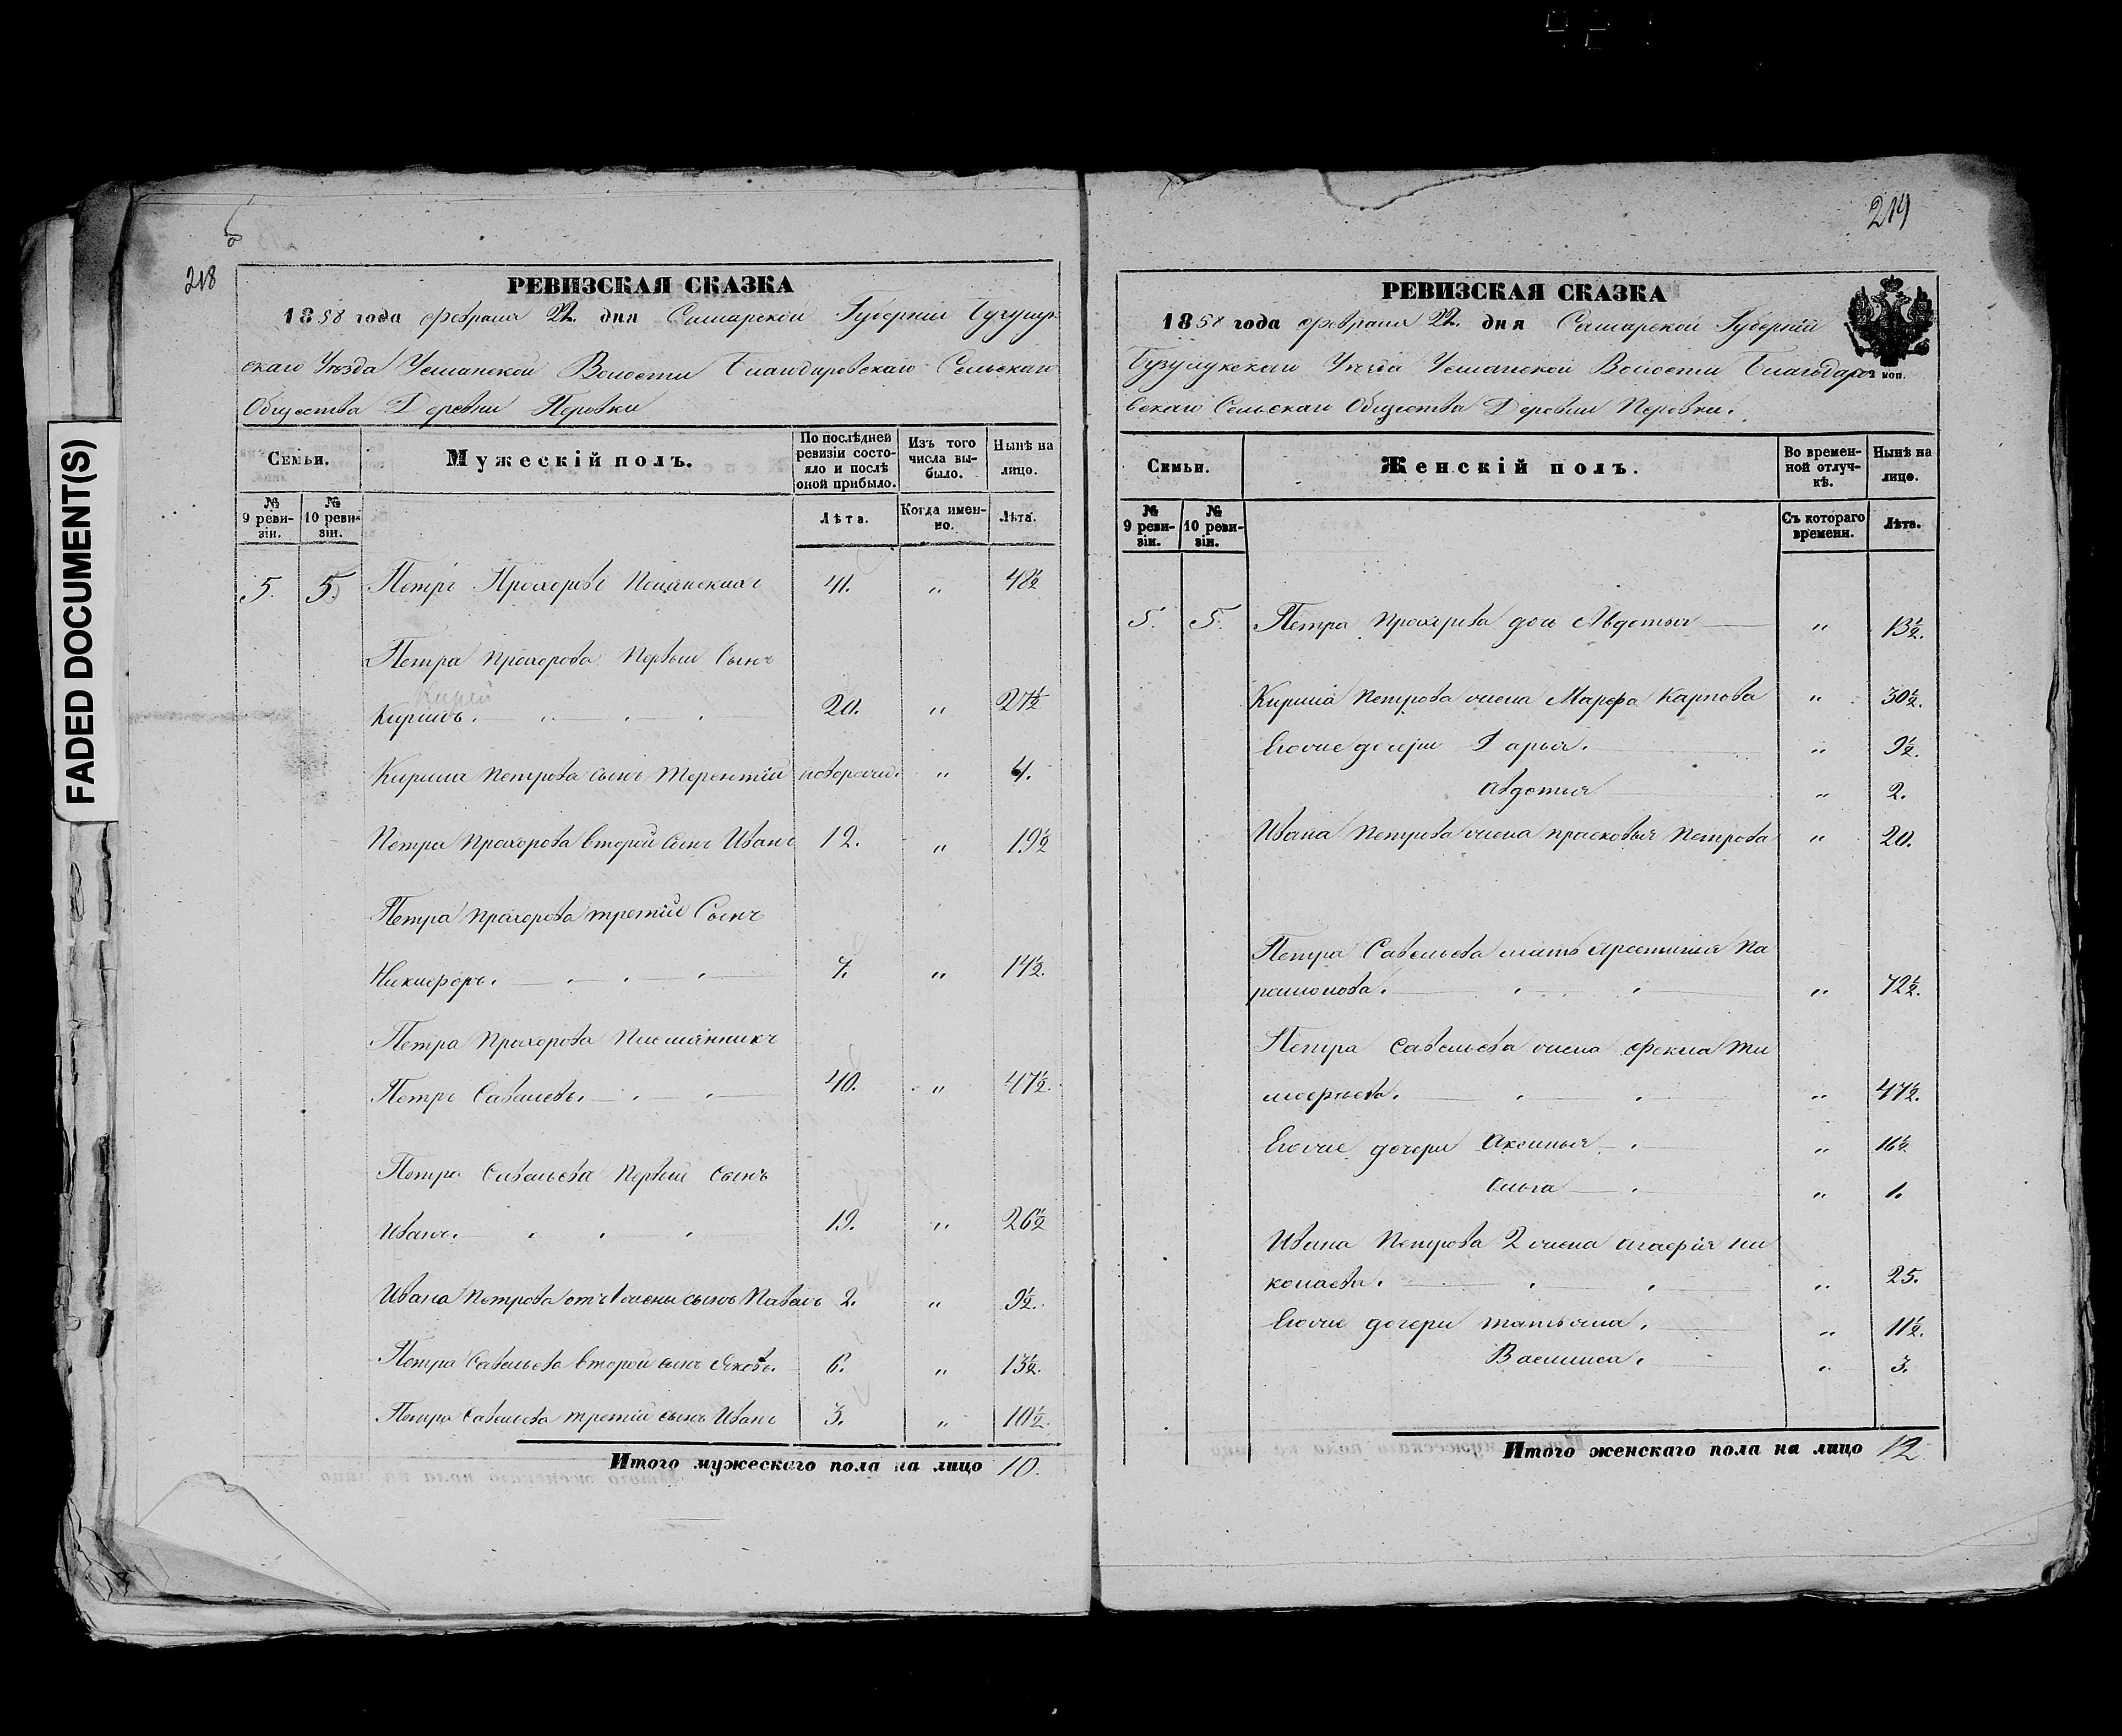 FADED DOCUMENT(S)
218
РЕВИЗСКАЯ СКАЗКА
1858 года февраля 22. дня Самарской Губерніи Бугурус-
скаго Уѣзда Усманской Волости Благодаровскаго Сельскаго
Общества Деревни Перовки
Семьи. Мужескій полъ. По послѣдней ревизіи состояло и послѣ оной прибыло. Изъ того числа выбыло. Нынѣ на лицо.
№ 9 ревизіи. № 10 ревизіи. Лѣта. Когда именно. Лѣта.
5. 5. Петръ Прохоровъ 41. " 48½
Петра Прохорова Первый Сынъ
Кирилъ. 20. " 27½
Кирила Петрова сынъ Терентій новорожд. " 4.
Петра Прохорова второй Сынъ Иванъ 12. " 19½
Петра Прохорова третій Сынъ
Никифоръ. 7. " 14½.
Петра Прохорова Племянникъ
Петръ Савельевъ. 40. " 47½.
Петра Савельева Первый Сынъ
Иванъ. 19. " 26½
Ивана Петрова отъ 1 жены сынъ Павелъ 2. " 9½.
Петра Савельева второй сынъ Яковъ. 6. " 13½.
Петра Савельева третій сынъ Иванъ 3. " 10½.
Итого мужескаго пола на лицо 10.
219
РЕВИЗСКАЯ СКАЗКА
1858 года февраля 22. дня Самарской Губерніи
Бузулукскаго Уѣзда Усманской Волости Благодаро-
вскаго Сельскаго Общества Деревни Перовки.
коп.
Семьи. Женскій полъ. Во временной отлучкѣ. Нынѣ на лицо.
№ 9 ревизіи. № 10 ревизіи. Съ котораго времени. Лѣта.
5. 5. Петра Прохорова доч Авдотья " 13½.
Кирила Петрова жена Марфа Карпова " 30½.
Его же дочери Дарья. " 9½.
Авдотья " 2.
Ивана Петрова жена Прасковья Петрова " 20.
Петра Савельева мать Па
" 72½.
Петра Савельева жена Фекла Ти
мофеева. " 47½.
Его же дочери Аксинья " 16½
Ольга " 1.
Ивана Петрова 2 жена Агафія Ни
колаева. " 25.
Его же дочери Татьяна. " 11½.
Василиса. " 3.
Итого женскаго пола на лицо 12